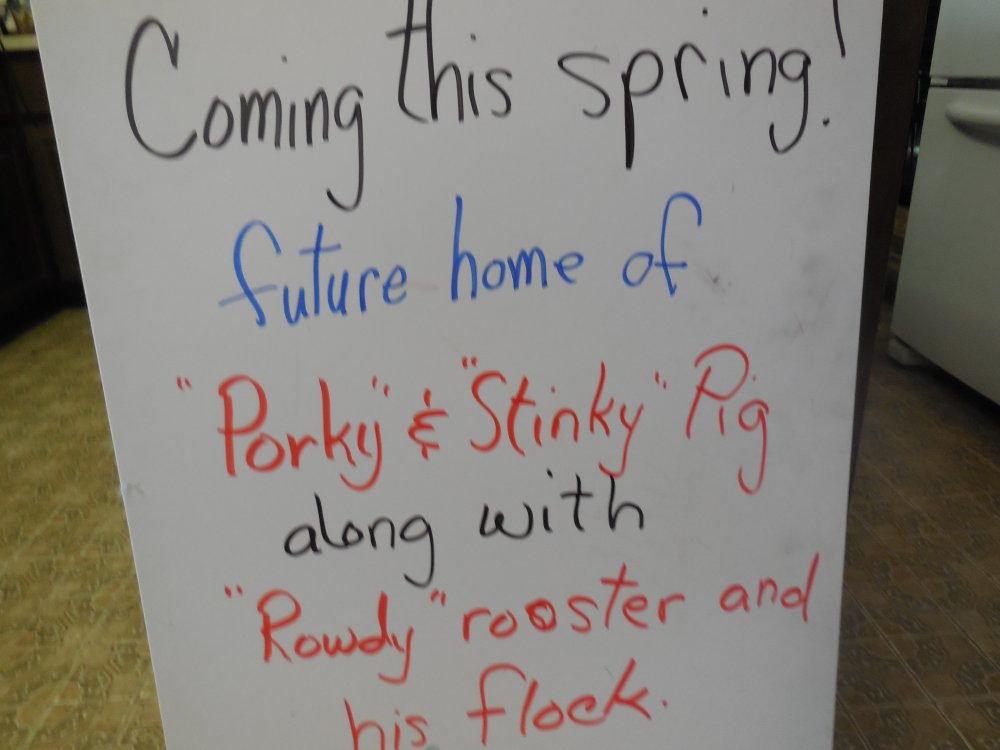 Coming this spring!
future home of
"Porky" & "Stinky" Pig
along with
"Rowdy" rooster and
his flock.